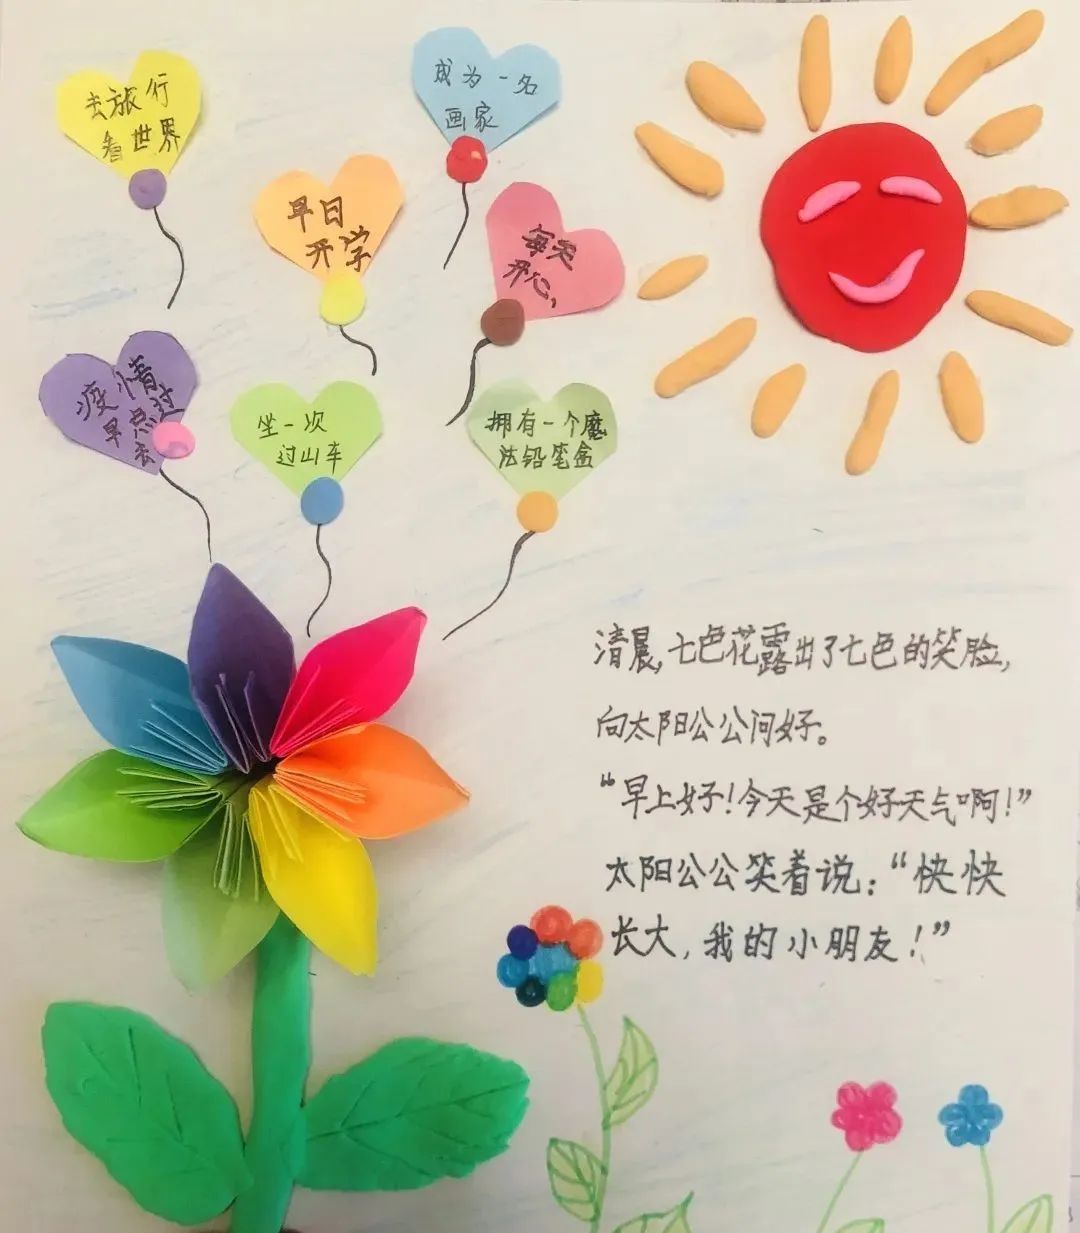 去旅行
看世界
成为一名
画家
早日
开学
每天
开心,
疫情
早点过
去
坐一次
过山车
拥有一个魔
法铅笔盒
清晨,七色花露出了七色的笑脸,
向太阳公公问好。
“早上好!今天是个好天气啊!”
太阳公公笑着说:“快快
长大,我的小朋友!”